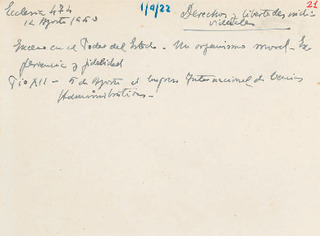 Ecclesia 474
12 Agosto 1950
1/9/22
Derechos y libertades indi-
viduales
21
Exceso en el Poder del Estado - Un organismo moral - Ex
periencia y fidelidad
Pio XII - 5 de Agosto al Congreso Internacional de Ciencias
Administrativas -